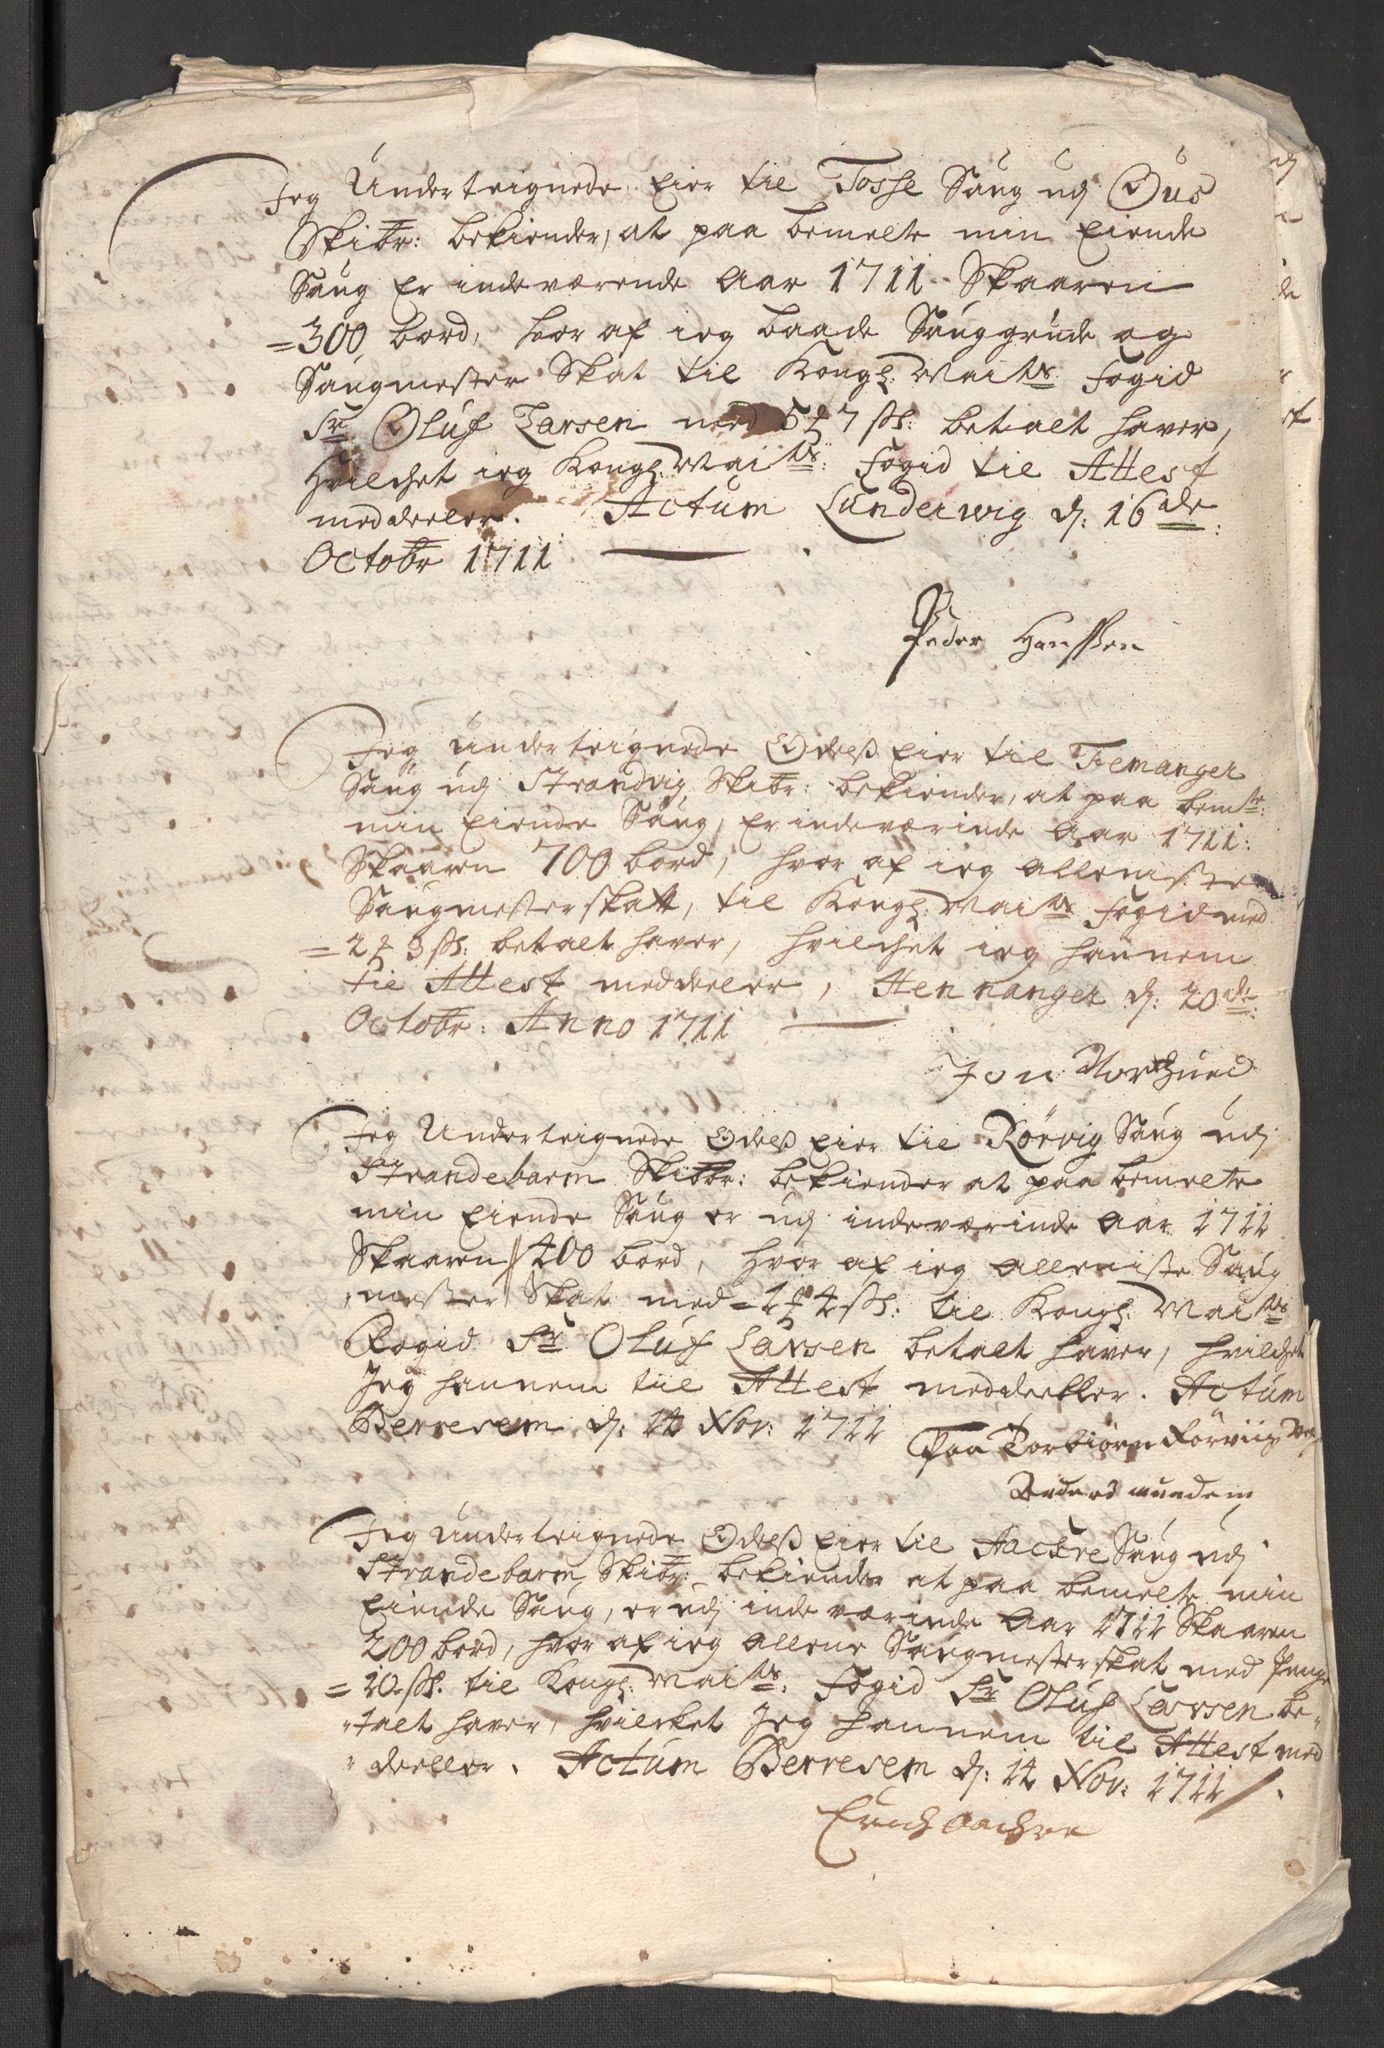 Jeg Underteignede Eier til Tosse Saug udj Ous
Skibr: bekiender, at paa bemelte min Eiende
Saug Er indeværende Aar 1711 Skaaren
=300 bord, hvor af ieg baade Sauggrunde og
Saugmester Skat til Kongl: Maits Fogid
Sr Oluf Larsen med 5 7 ss: betalt haver,
Hvilchet ieg Kongl: Maits: Fogid til Attest
meddeeler. Actum Lunderwig d: 16de
Octobr 1711
Peder Hanssen
Jeg underteignede Odelss Eier til Tiemanger
Saug udj Strandvig Skibr: bekiender, at paa bemte:
min Eiende Saug, Er indeværinde Aar 1711:
Skaaren 700 bord, hvor af ieg alleniste
Saugmesterskatt, til Kongl: Maits Fogid med
=2 3 ss: betalt haver, hvilchet ieg hannem
til Attest meddeeler, Hennanger d: 20de:
Octobr: Anno 1711
Jon
Jeg Underteignede Odelss Eier til Rörvig Saug udj
Strandebarm Skibbr: bekiender at paa bemelte
min Eiende Saug er udj indeværinde Aar 1711
Skaaren 400 bord, hvor af ieg alleniste Saug
mester Skat med =1 2 ss: til Kongl: Maits
Fogid Sr Oluf Larsen betalt haver, hvilchet
Jeg hannem til Attest meddeeller. Actum
Berresem d: 14 Nov: 1711
Paa Torbiörn Rörviig
Jeg underteignede Odelss Eier til Aachre Saug udj
Strandebarm Skibr: bekiender at paa bemelte min
Eiende Saug, er udj indeværinde Aar 1711 Skaaren
200 bord, hvor af ieg allene Saugmesterskat med Penge
=10 ss. til Kongl: Maits: Fogid Sr Oluf Larsen be-
talt haver, hvilchet Jeg hannem til Attest med
deeller. Actum Berresem d: 14 Nov: 1711
Erich Aachre